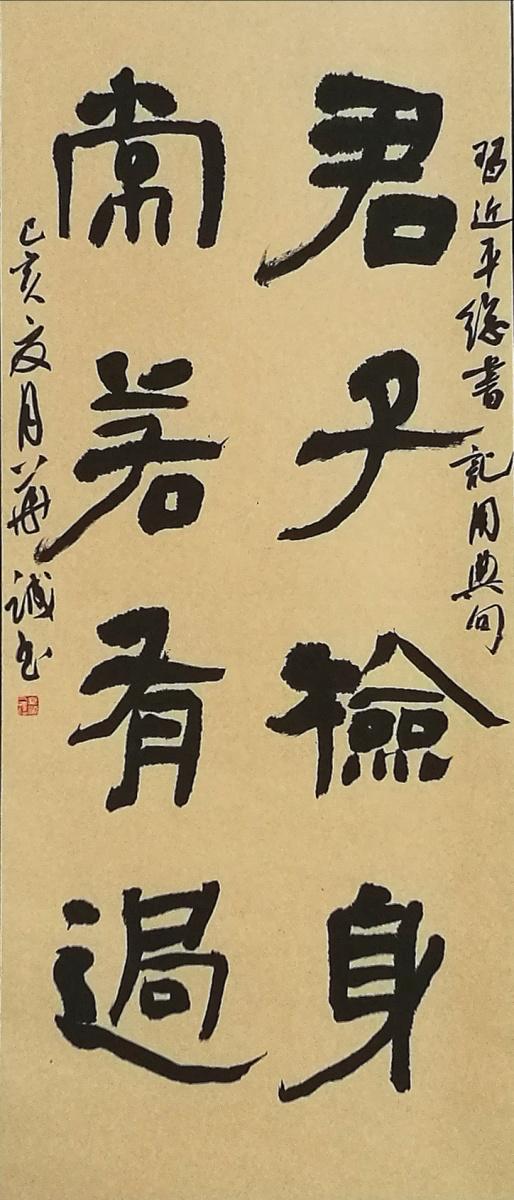 习近平總書記用典句
君子檢身
常若有過
己亥夏月華誠书